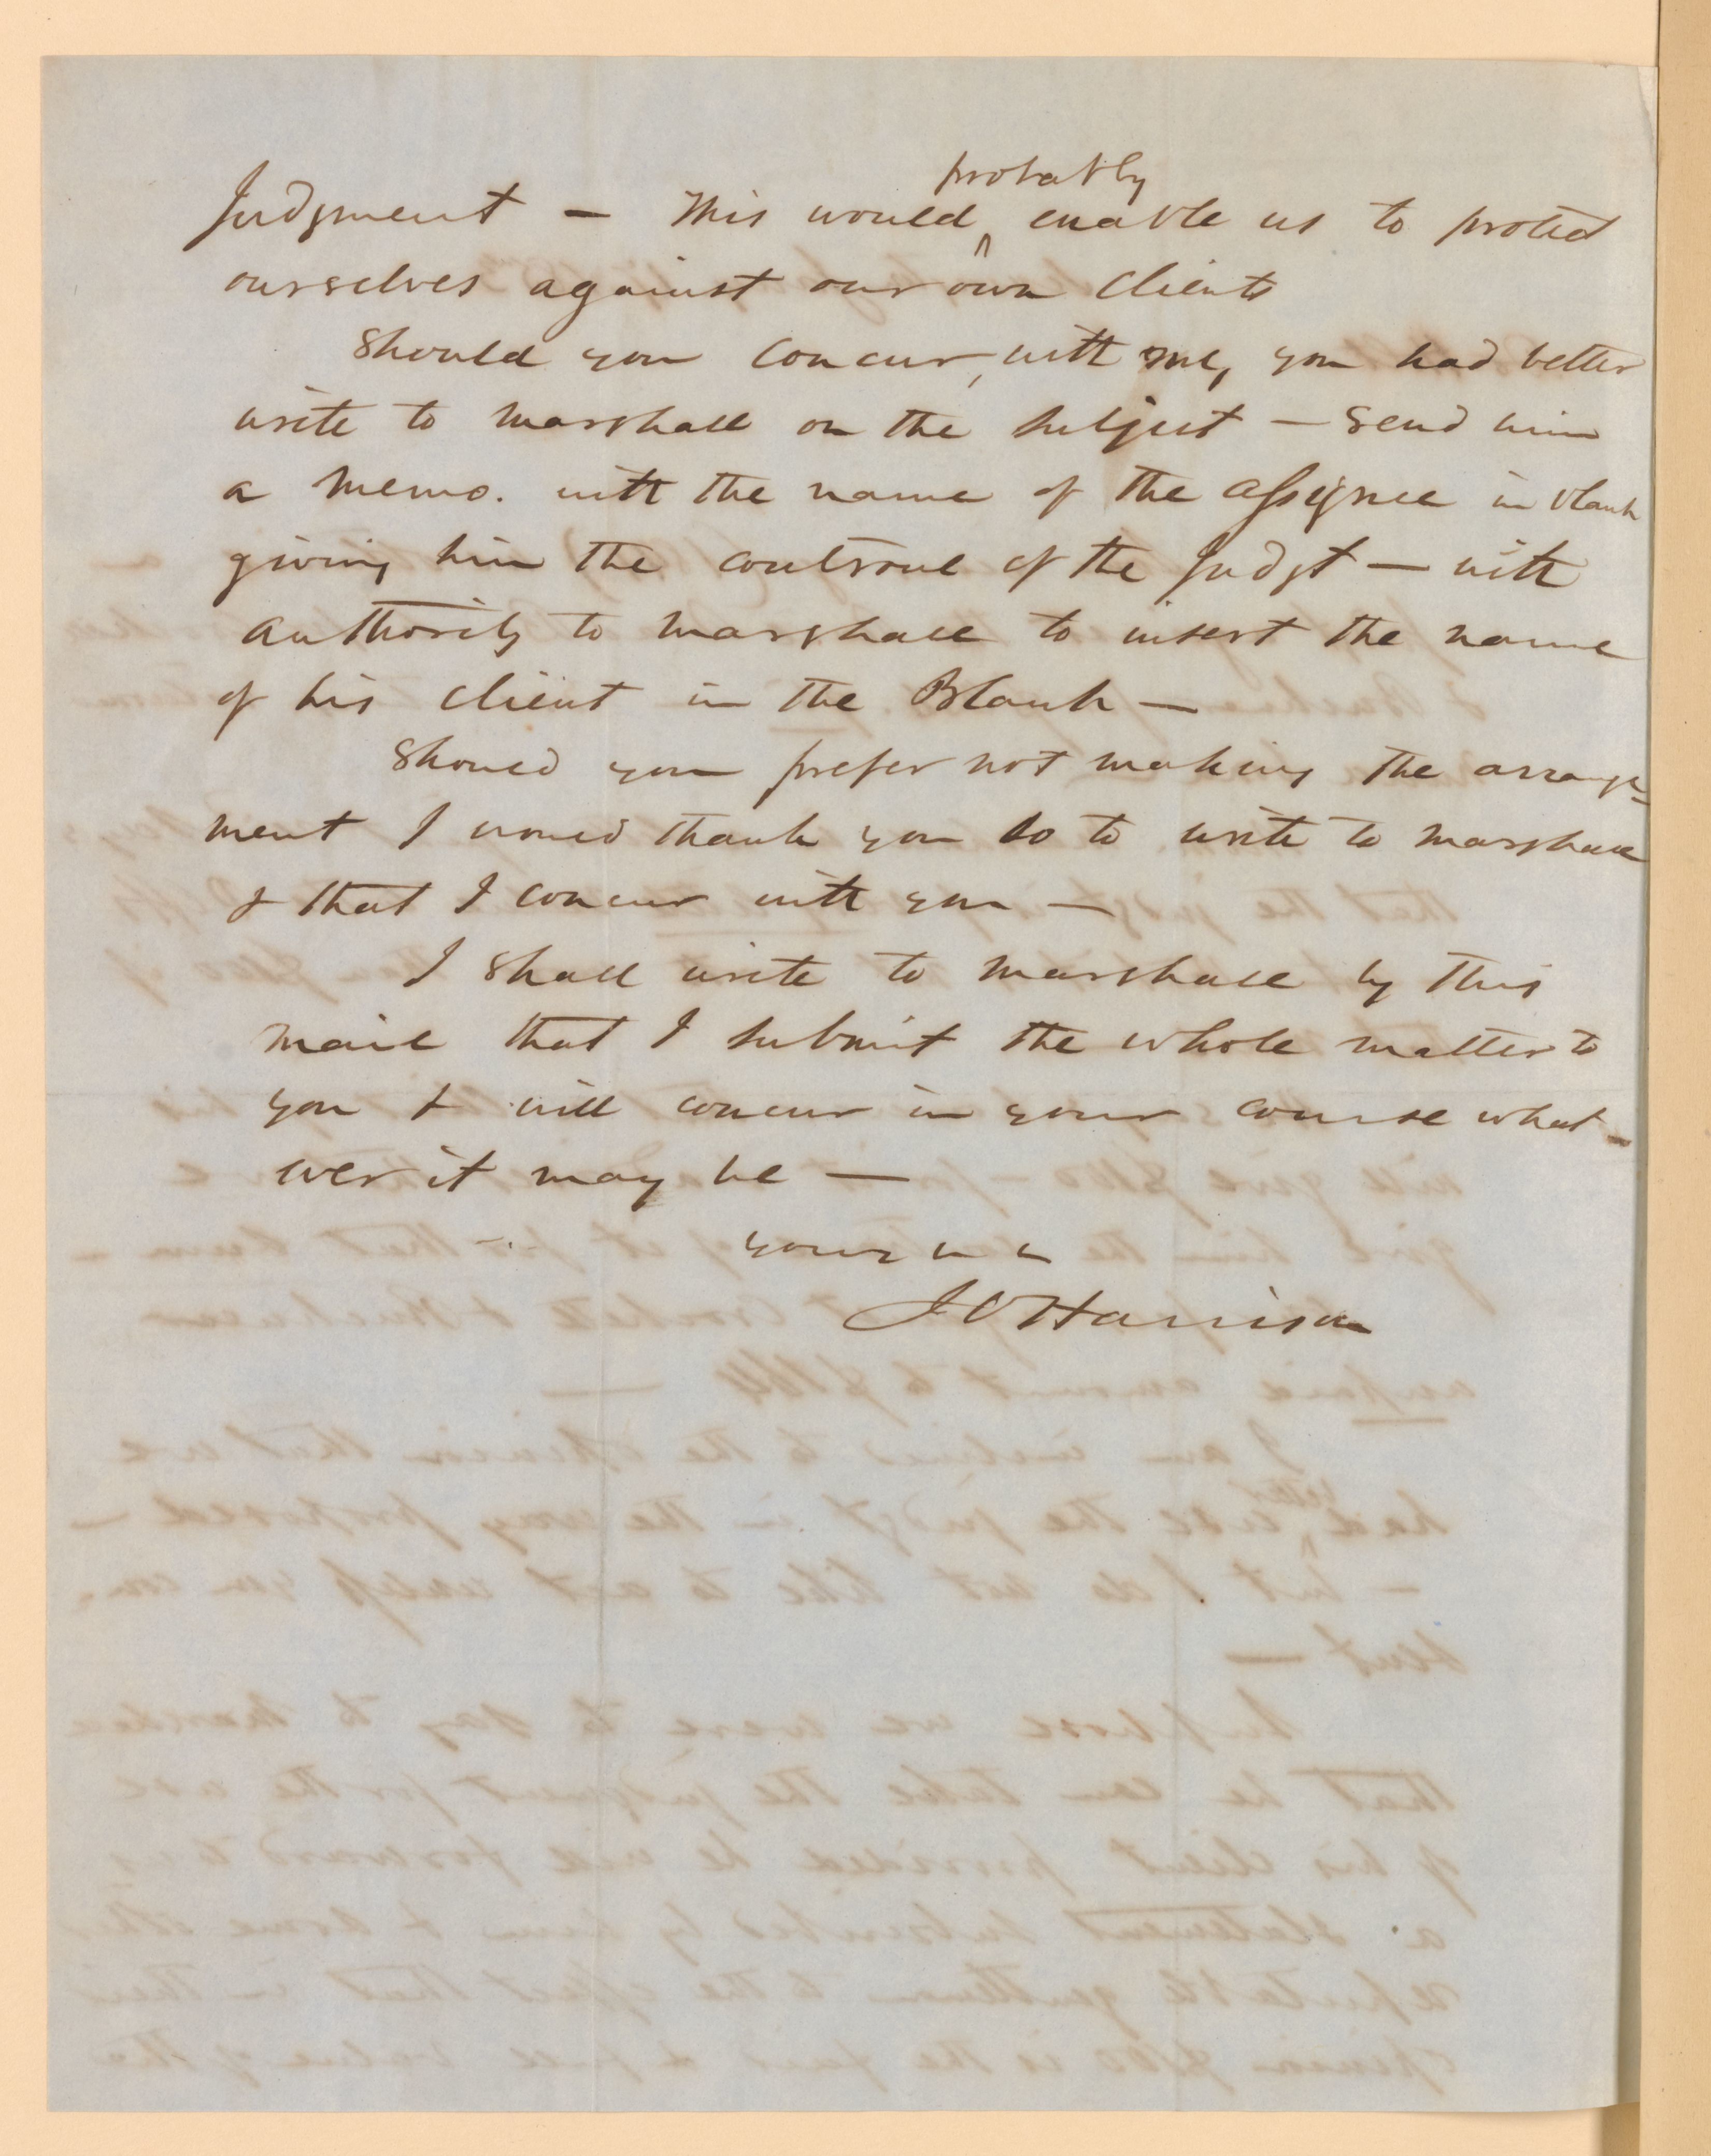 Judgment — This would ^ probably enable us to protect
ourselves against our own clients
Should you concur, with me, you had better
write to Marshall on the subject — send him
a memo. with the name of the assignee in blank
giving him the controul of the Judgt — with
authority to Marshall to insert the name
of his client in the Blank —
Should you prefer not making the arrange=
ment I would thank you to write to Marshall
& that I concur with you —
I shall write to Marshall by this
mail that I submit the whole matter to
you & will concur in your course what-
ever it may be —
yours
J O Harrison